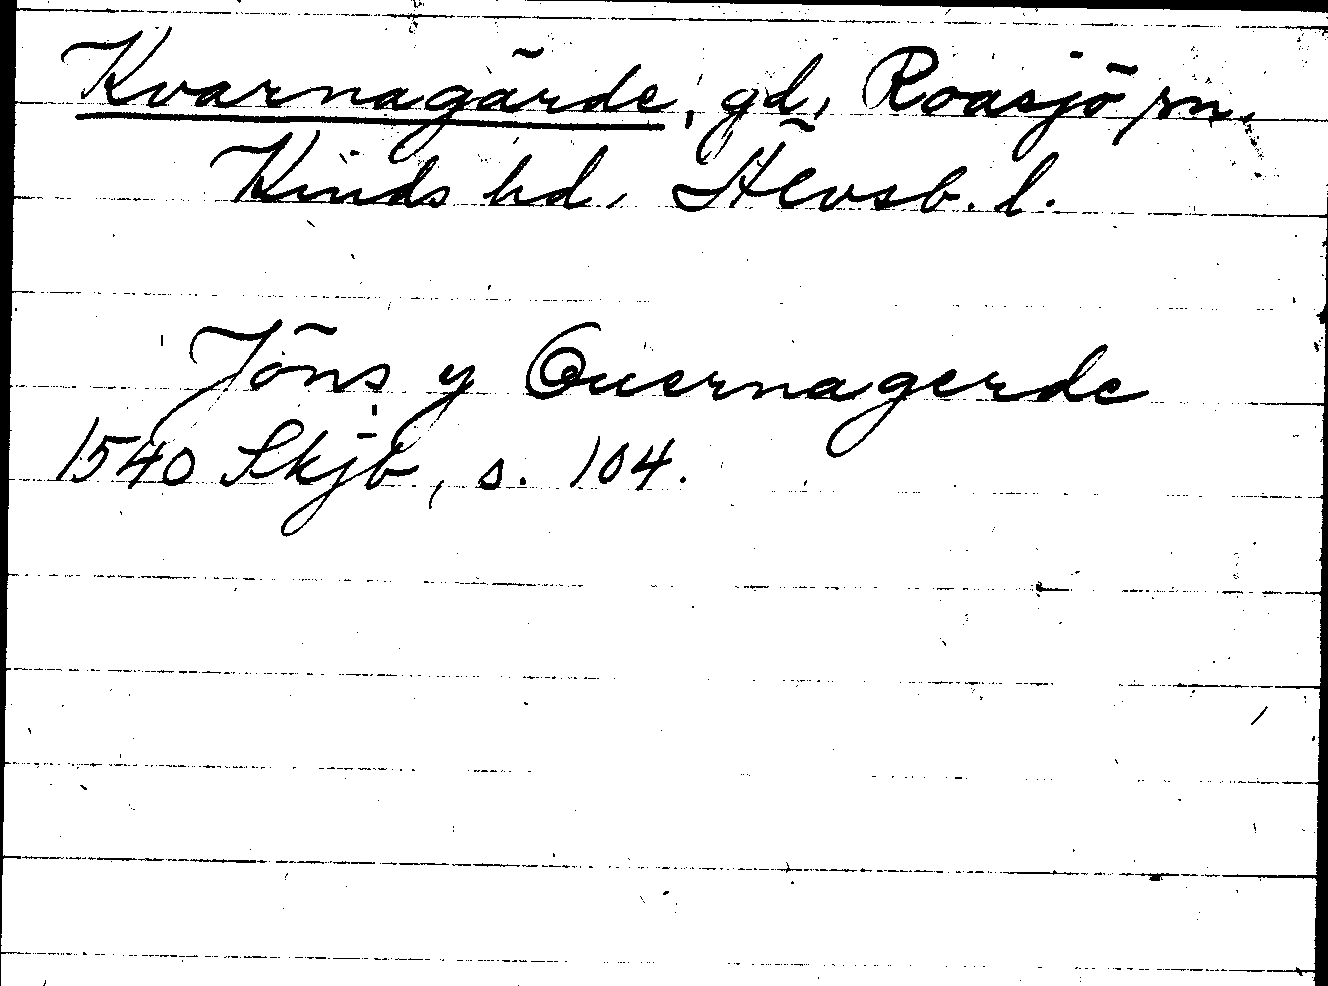 Kvarnagärde, gd, Roasjö sn.
Kinds hd, Älvsb. l.
Jöns y Quernagerde
1540 Skjb, s. 104.